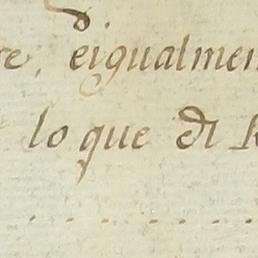 re, eigualmen
lo que el R